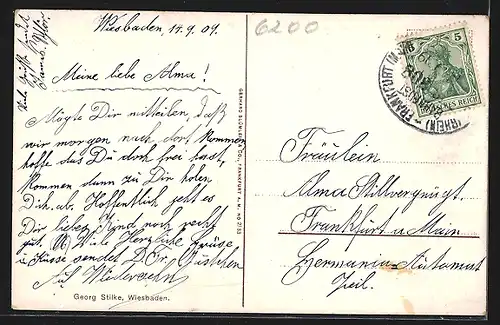 Wiesbaden 11.9.09.
6200
Meine liebe Alma!
Mögte Dir mitteilen, daß
wir morgen nach dort kommen
hoffe das Du doch frei hast,
kommen dann zu Dir holen
Dich ab. Hoffentlich geht es
Dir liebes Kind noch recht
gut. Viele Herzliche Grüße
u Küsse sendet D.
Auf Wiedersehn
Georg Stilke, Wiesbaden.
5 5
DEUTSCHES REICH
FRANKFURT
(RHEIN)
Fräulein
Alma Stillvergnügt
Frankfurt a Main
Germania-Automat
Zeil.